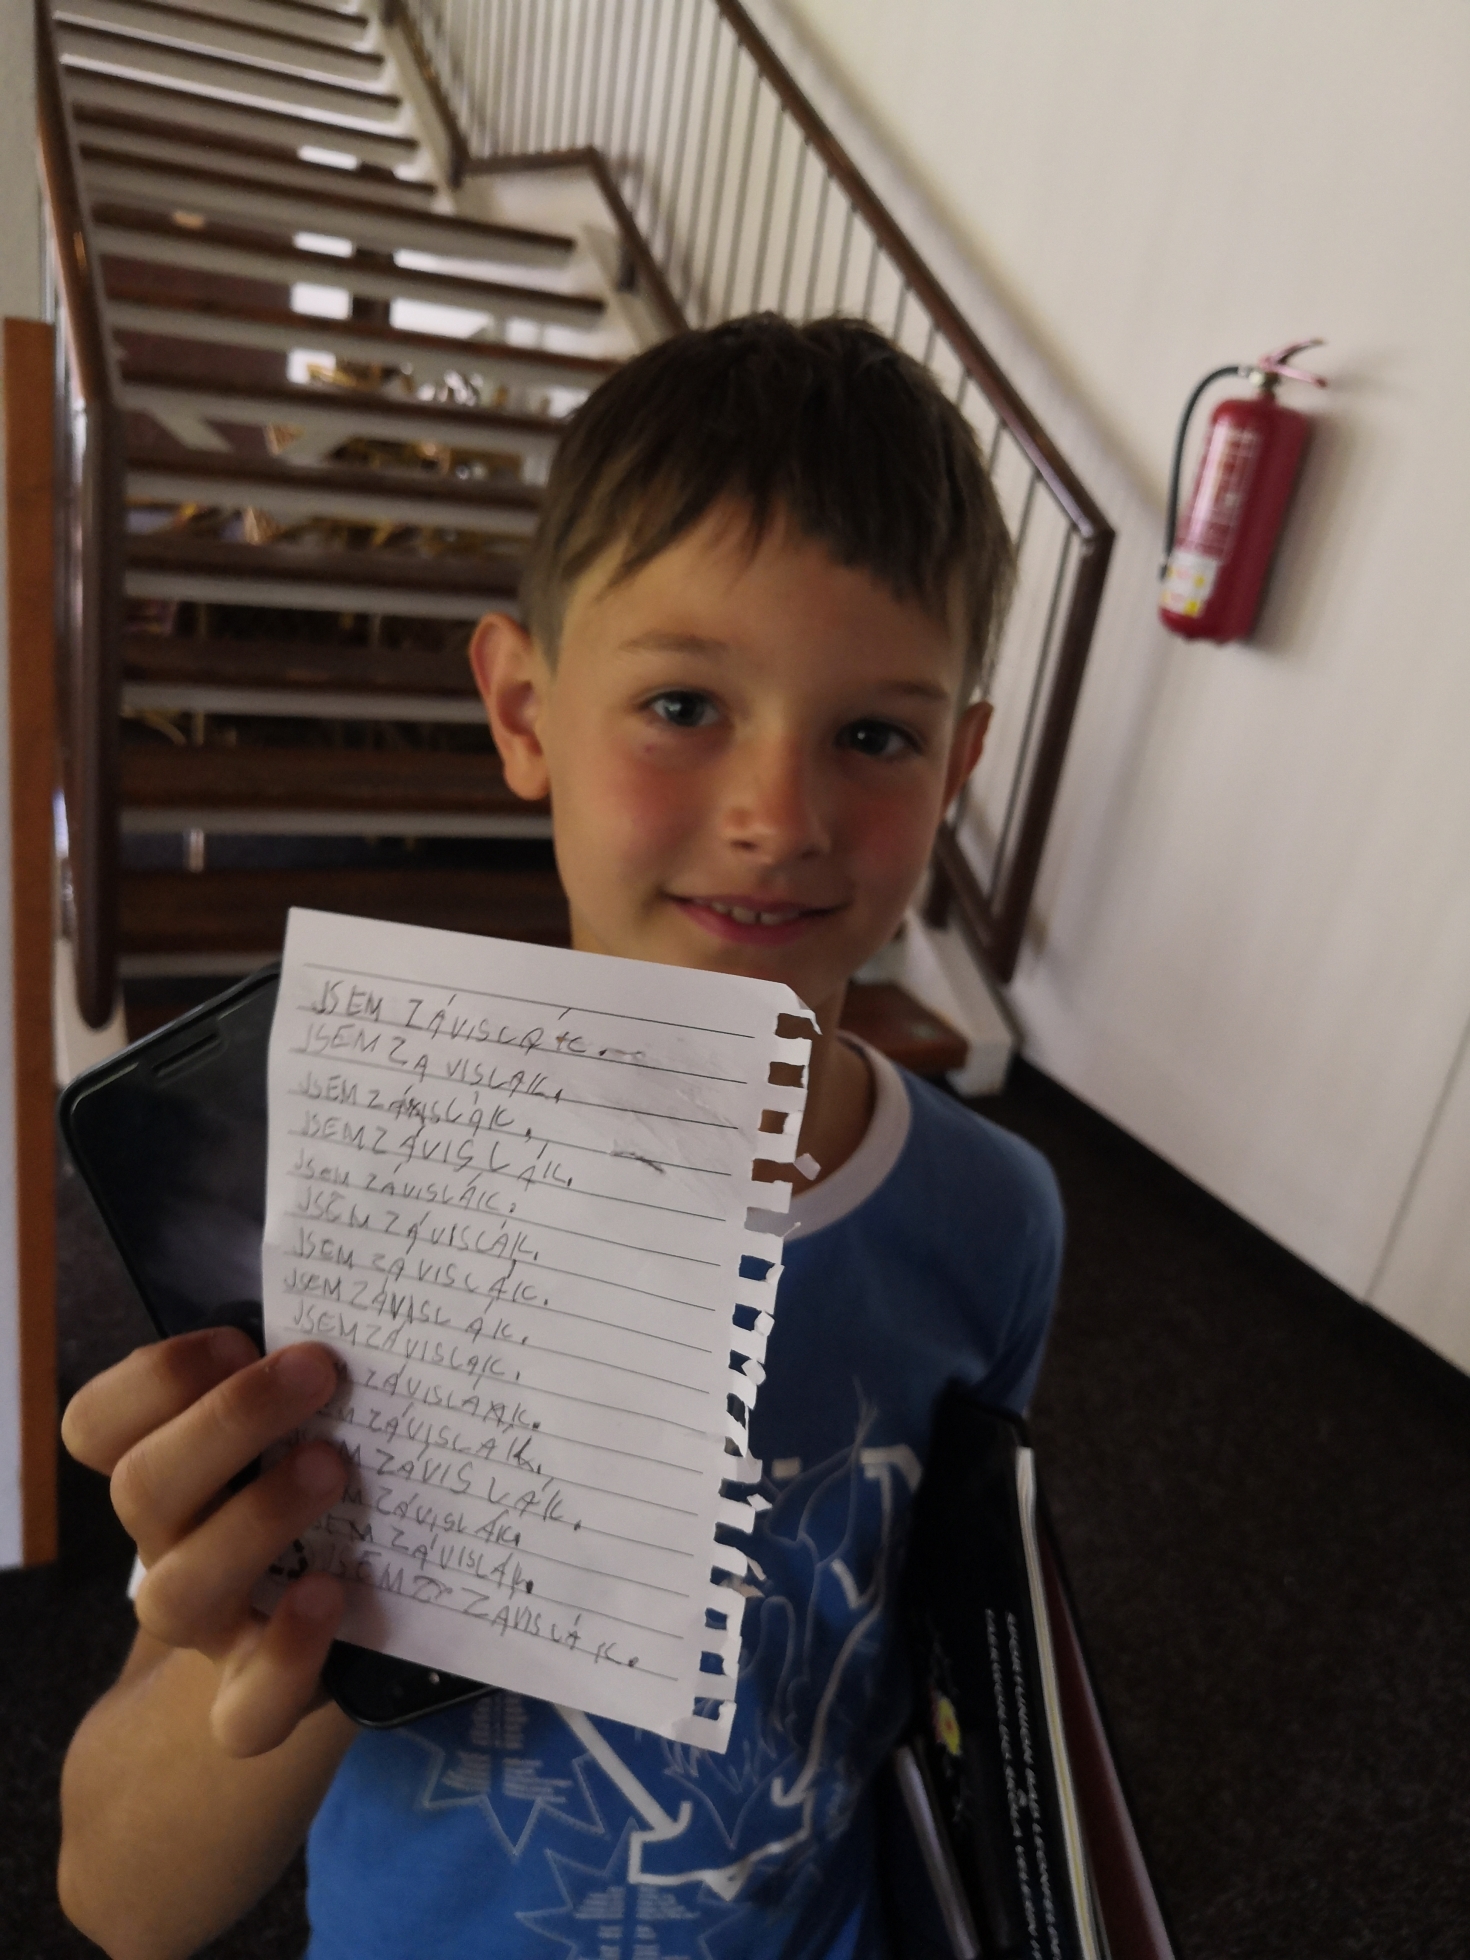 JSEM ZÁVISLÁK.
JSEM ZA VISLAK.
JSEM ZÁVISLÁK.
JSEM ZÁVISLÁK.
JSEM ZÁVISLÁK.
JSEM ZÁVISLÁK.
JSEM ZÁVISLÁK.
JSEM ZÁVISLÁK.
JSEM ZÁVISLÁK.
M ZÁVISLAK.
EM ZÁVISLÁK.
EM ZÁVISLÁK.
M ZÁVISLÁK.
SEM ZÁVISLÁK.
JSEM ZÁVISLÁK.